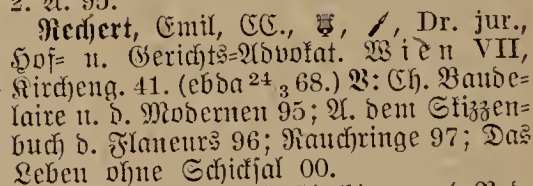 2. A. 95.
Rechert, Emil, CC., Dr. jur.,
Hof= u. Gerichts=Advokat. Wien VII,
Kircheng. 41. (ebda 24/3 68.) V: Ch. Baude=
laire u. d. Modernen 95; A. dem Skizzen=
buch d. Flaneurs 96; Rauchringe 97; Das
Leben ohne Schicksal 00.